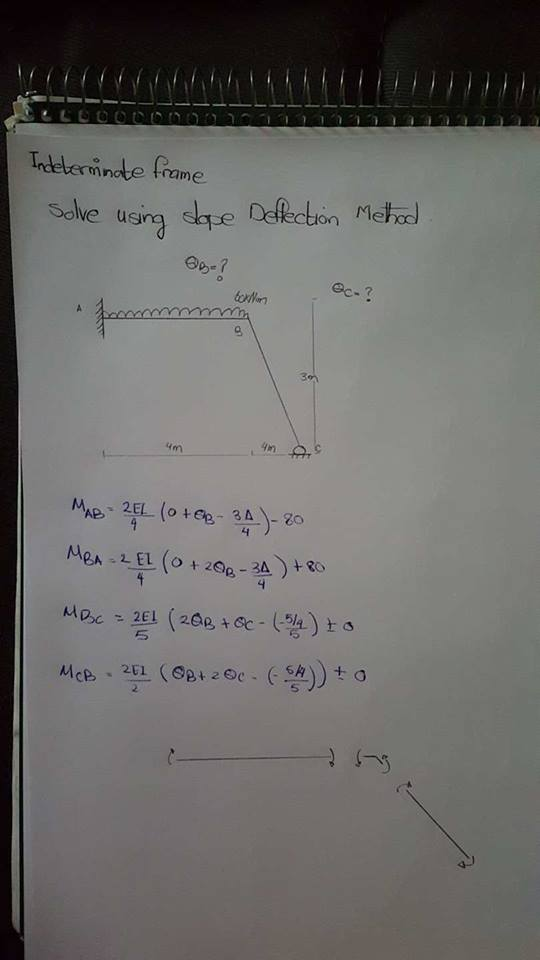 Indeterminate frame
Solve using slope Deflection Method.
θB=?
60kN/m
θC=?
A
B
3m
4m
4m
C
MAB = 2EI/4 (0 + θB - 3Δ/4) - 80
MBA = 2EI/4 (0 + 2θB - 3Δ/4) + 80
MBC = 2EI/5 (2θB + θC - (-5/4/5) ± 0
MCB = 2EI/2 (θB + 2θC - (-5/4/5)) ± 0